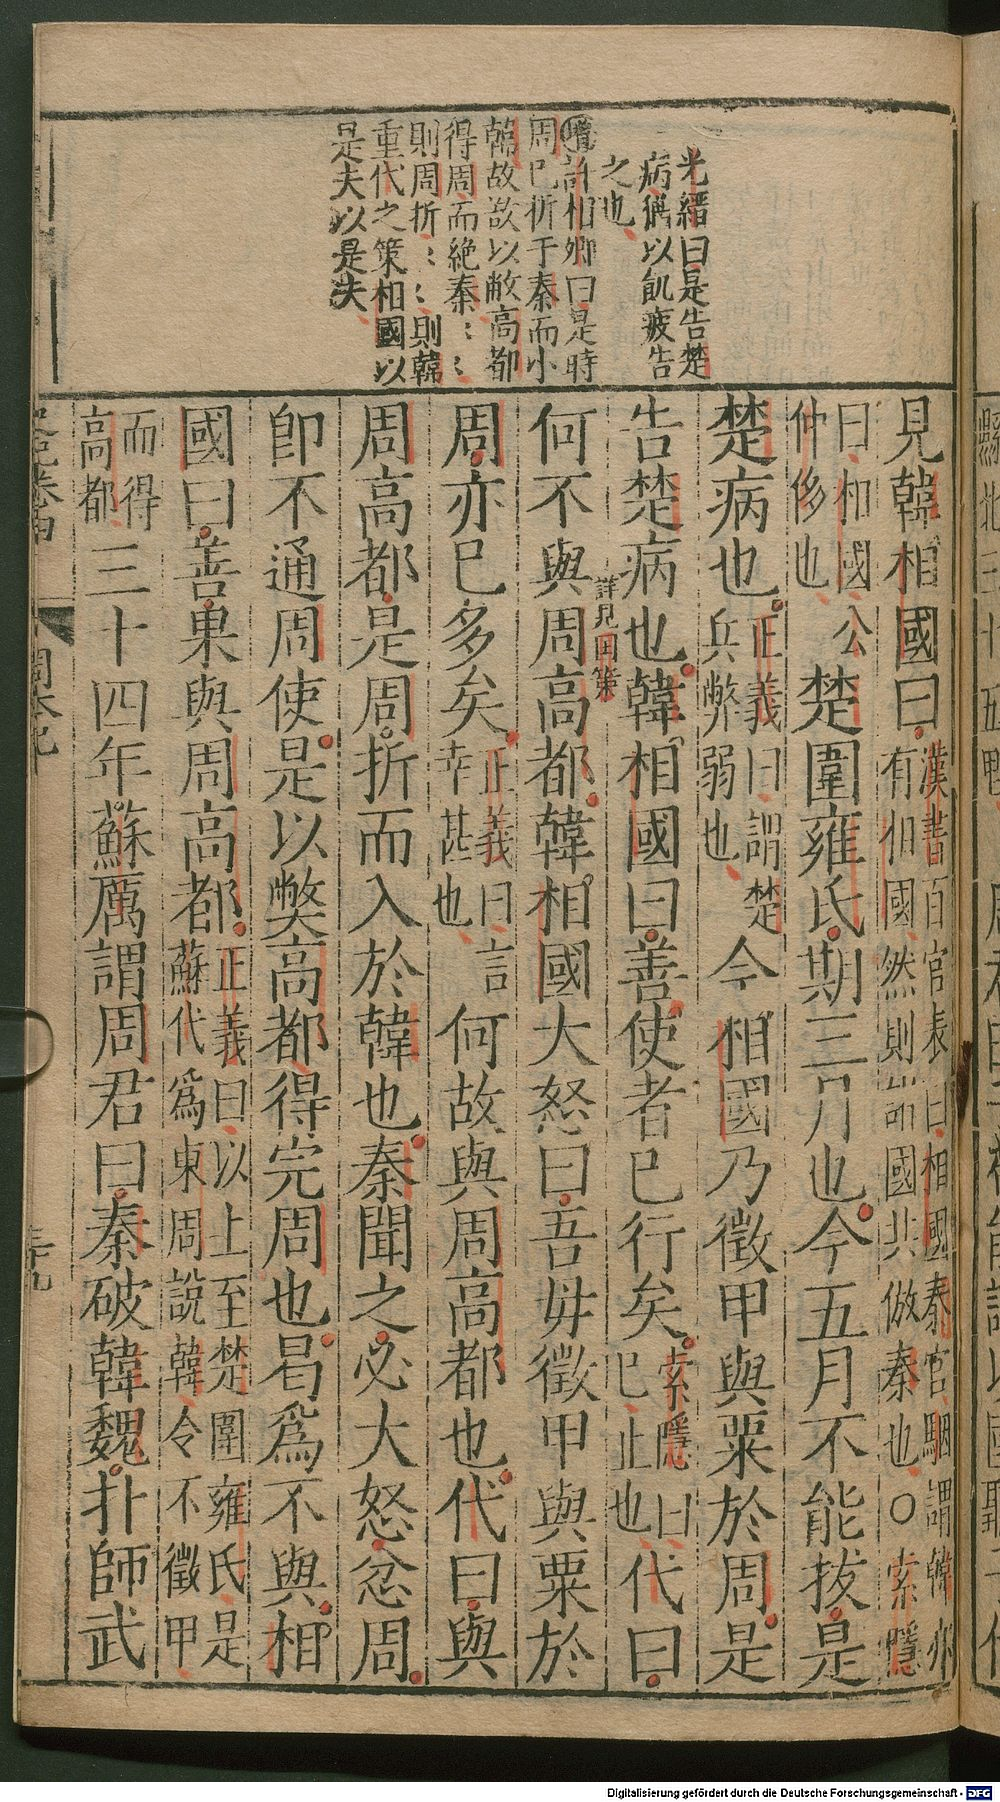 光縉曰是告楚
病猶以飢疲告
之也
增許相卿曰是時
周已折于秦而小
韓故欲以敝高都
得周而絕秦〻〻
則周折〻〻則韓
重代之策相國以
是夫以是夫
見韓相國曰漢書百官表曰相國秦官駰謂韓亦
有相國然則諸國共倣秦也○索隱
曰相國公
仲侈也楚圍雍氏期三月也今五月不能拔是
楚病也正義曰謂楚
兵弊弱也今相國乃徵甲與粟於周是
告楚病也韓相國曰善使者已行矣索隱曰
已止也代曰
詳見国策
何不與周高都韓相國大怒曰吾毋徵甲與粟於
周亦已多矣正義曰言
幸甚也何故與周高都也代曰與
周高都是周折而入於韓也秦聞之必大怒忿周
卽不通周使是以獘高都得完周也曷爲不與相
國曰善果與周高都正義曰以上至楚圍雍氏是
蘇代爲東周說韓令不徵甲
而得
高都三十四年蘇厲謂周君曰秦破韓魏扑師武
史記卷四
周本紀
三十九
Digitalisierung gefördert durch die Deutsche Forschungsgemeinschaft - DFG